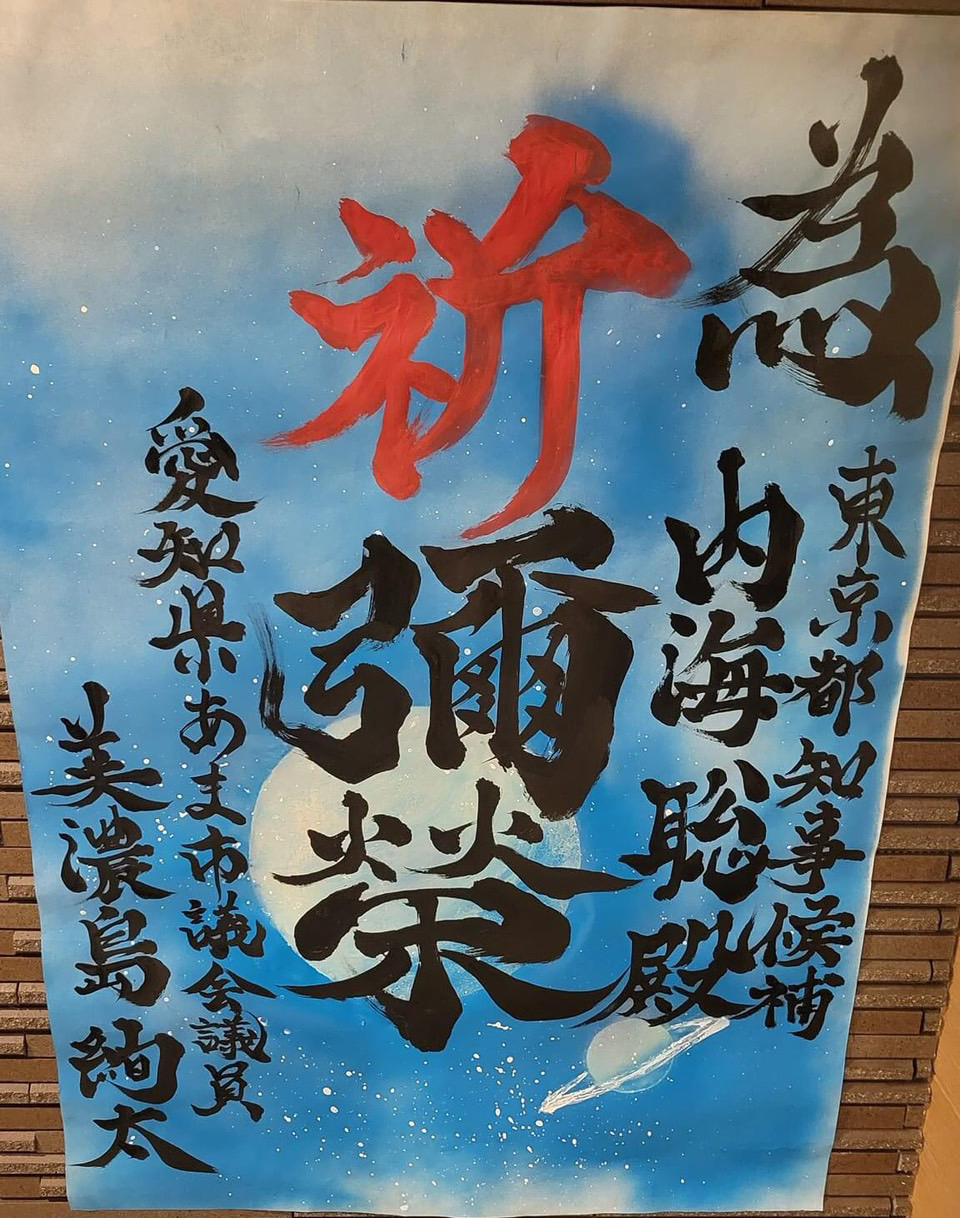 為
東京都知事候補
内海聡殿
祈
彌榮
愛知県あま市議会議員
美濃島絢太